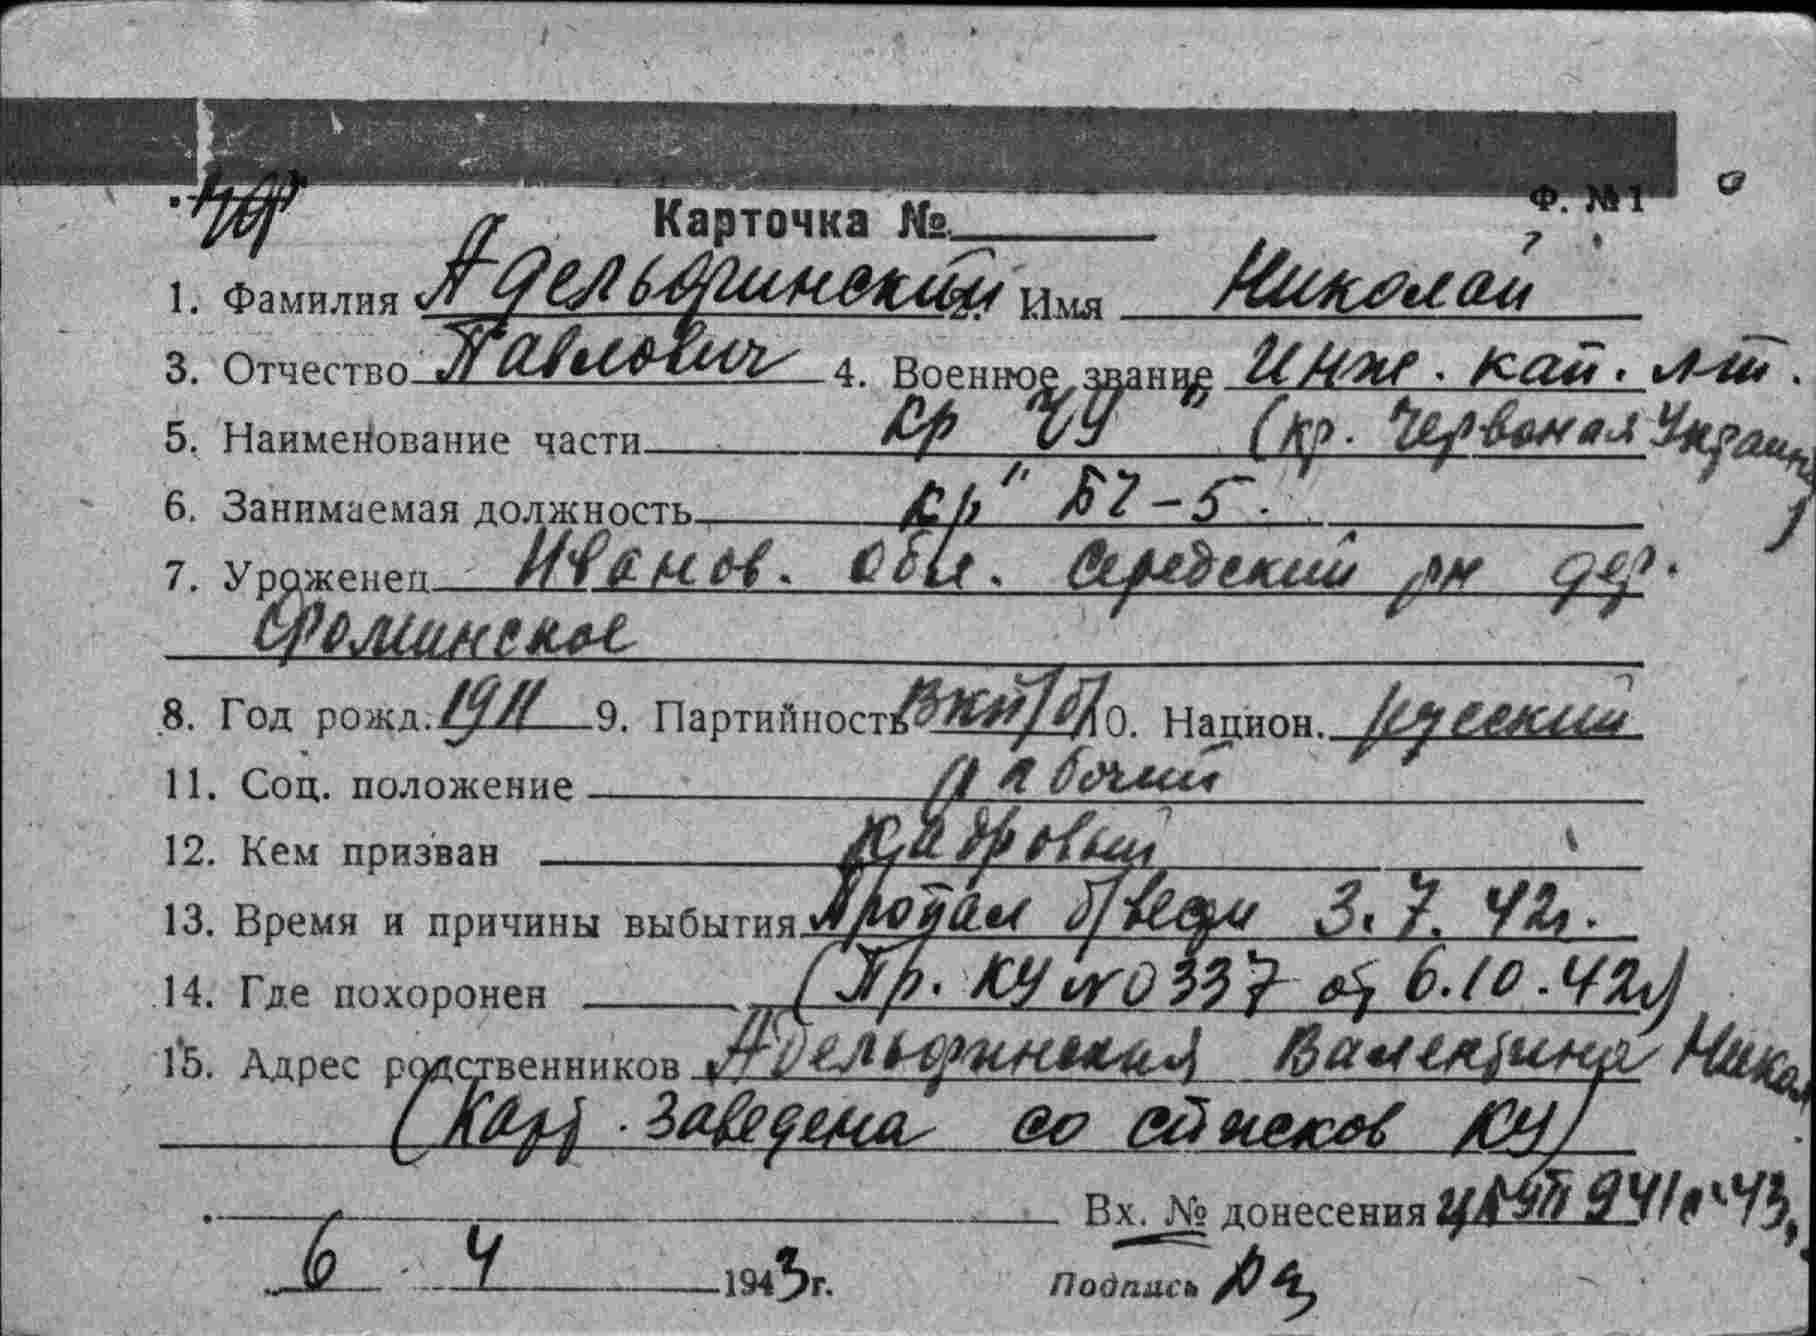 Ф. №1
Карточка №
1. Фамилия Адельфинский 2. Имя Николай
3. Отчество Павлович 4. Военное звание Инж. кап. л-т.
5. Наименование части кр "ЧУ" (кр. Червоная Украина)
6. Занимаемая должность к-р" БЧ-5.
7. Уроженец Иванов. обл. Середский рн дер.
Фоминское
8. Год рожд. 1911 9. Партийность ВКП/б/ 10. Национ. русский
11. Соц. положение рабочий
12. Кем призван кадровый
13. Время и причины выбытия Пропал б/вести 3.7.42г.
14. Где похоронен (Пр. КУ №0337 от 6.10.42г)
15. Адрес родственников Адельфинская Валентина Никол
(Карт. заведена со списков КУ)
Вх. № донесения 941с-43
6 4 1943г.
Подпись